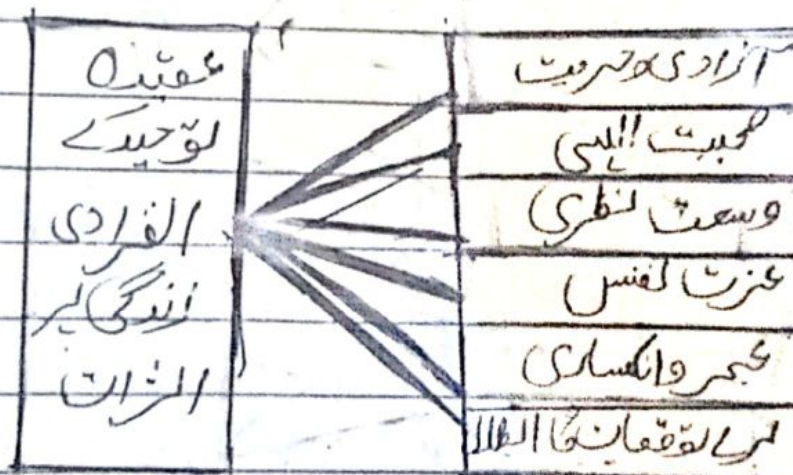 عقیدہ
توحیدکے
انفرادی
زندگی پر
اثرات
آزادی و حریت
محبت الہیی
وسعت نظری
عزت نفس
عجز و انکساری
توقعات کا